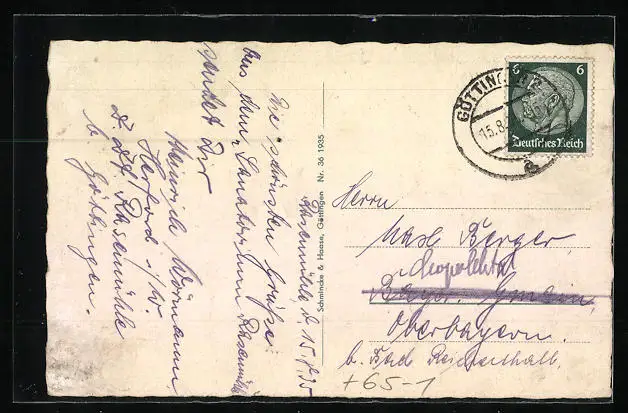 Rasenmühle, d. 15.8.35
Die schönsten Grüße
aus dem Sanatorium Rasenmühle
sendet Dir
Heinrich Wörmann
Herford i/W.
z. Zt. Rasemühle
b. Göttingen.
Schmincke & Haase, Göttingen Nr. 36 1935
GÖTTINGEN
15.8.
a
6 6
Deutsches Reich
Herrn
Max Berger
Leopoldstal
Bayer. Gmain
Oberbayern.
b. Bad Reichenhall.
+65-1